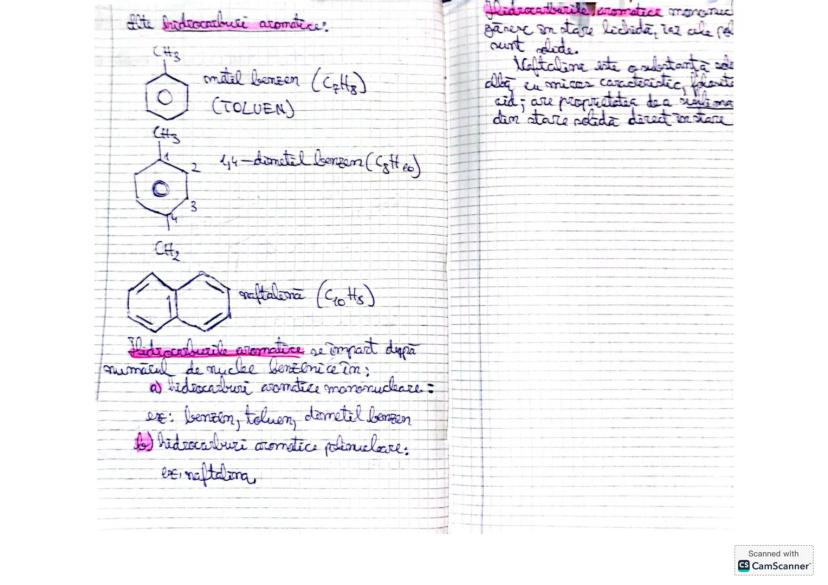 Alte hidrocarburi aromatice:
CH3
metil benzen (C7H8)
(TOLUEN)
CH3
1
2
1,4-dimetil benzen (C8H10)
3
4
CH2
naftalenă (C10H8)
Hidrocarburile aromatice se împart după
numărul de nuclee benzenice în:
a) hidrocarburi aromatice mononucleare:
ex: benzen, toluen, dimetil benzen
b) hidrocarburi aromatice polinucleare:
ex: naftalena,
Hidrocarburile aromatice mononucl
găsesc în stare lichidă, iar cele pol
sunt solide.
Naftalina este o substanță sol
albă cu miros caracteristic, folosit
cid; are proprietatea de a sublima
din stare solidă direct în stare
Scanned with
CS CamScanner